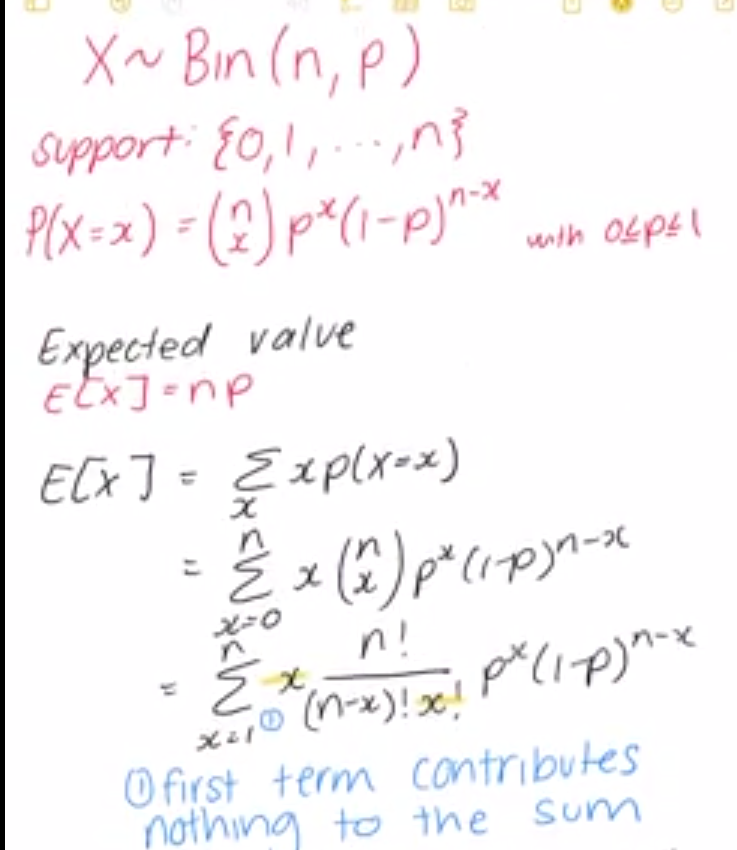 X ~ Bin(n, p)
support: {0, 1, ..., n}
P(X=x) = (n x) p^x (1-p)^{n-x} with 0≤p≤1
Expected value
E[X] = np
E[X] = Σ_x x p(X=x)
= Σ_{x=0}^{n} x (n x) p^x (1-p)^{n-x}
= Σ_{x=1}^{n} ① x n!/((n-x)! x!) p^x (1-p)^{n-x}
① first term contributes
nothing to the sum